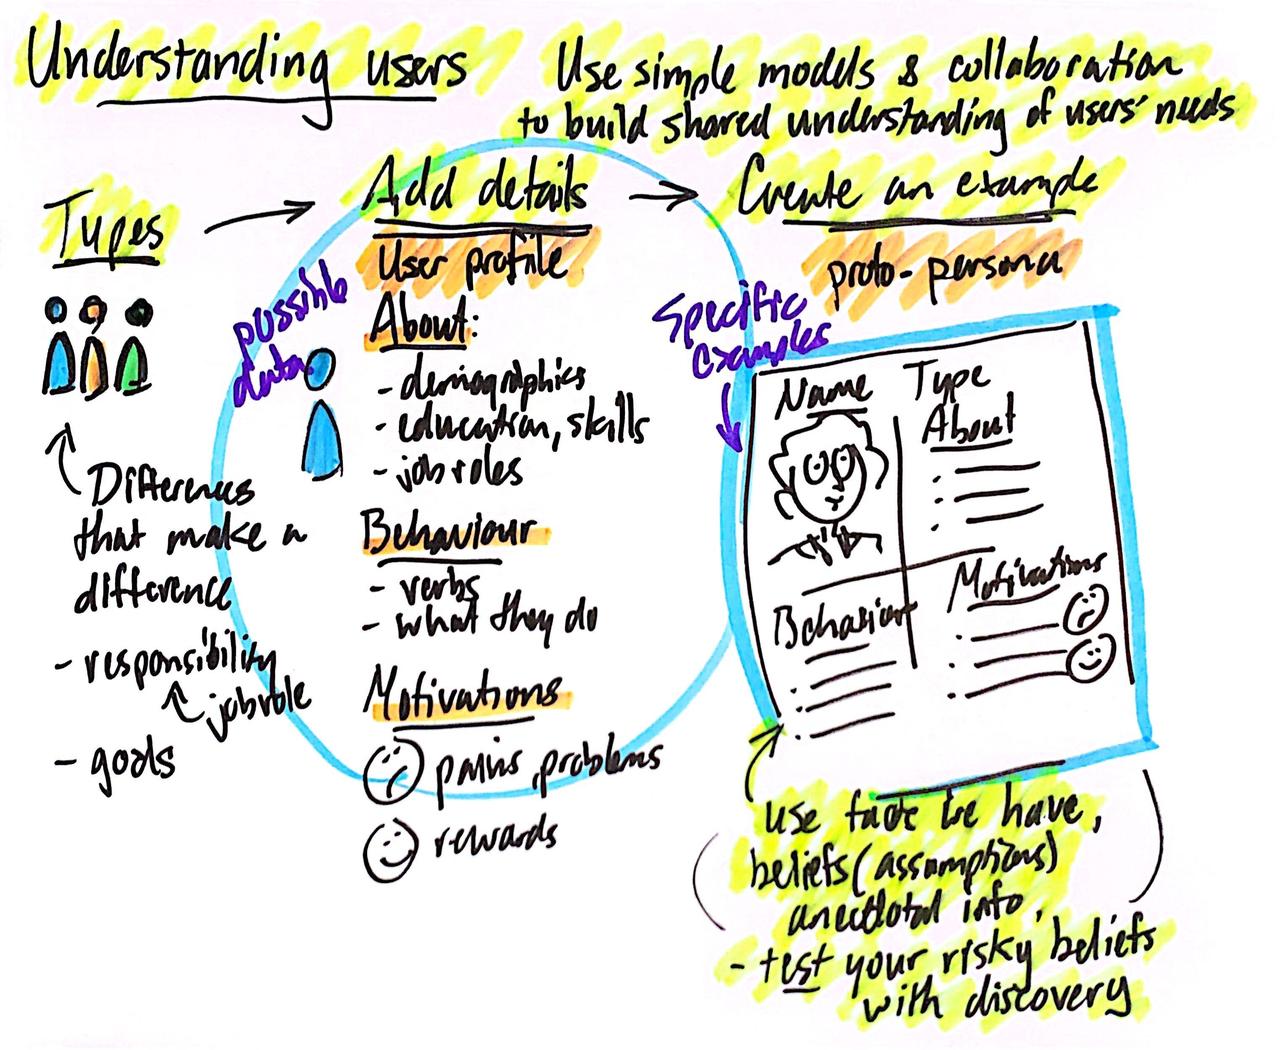 Understanding users
Use simple models & collaboration
to build shared understanding of users' needs
Types
Differences
that make a
difference
- responsibility
job role
- goals
Add details
User profile
possible
data
About:
- demographics
- education, skills
- job roles
Behaviour
- verbs
- what they do
Motivations
pains, problems
rewards
Create an example
proto-persona
Specific
examples
Name
Type
About
Behaviour
Motivations
use facts we have,
beliefs (assumptions)
anecdotal info,
- test your risky beliefs
with discovery